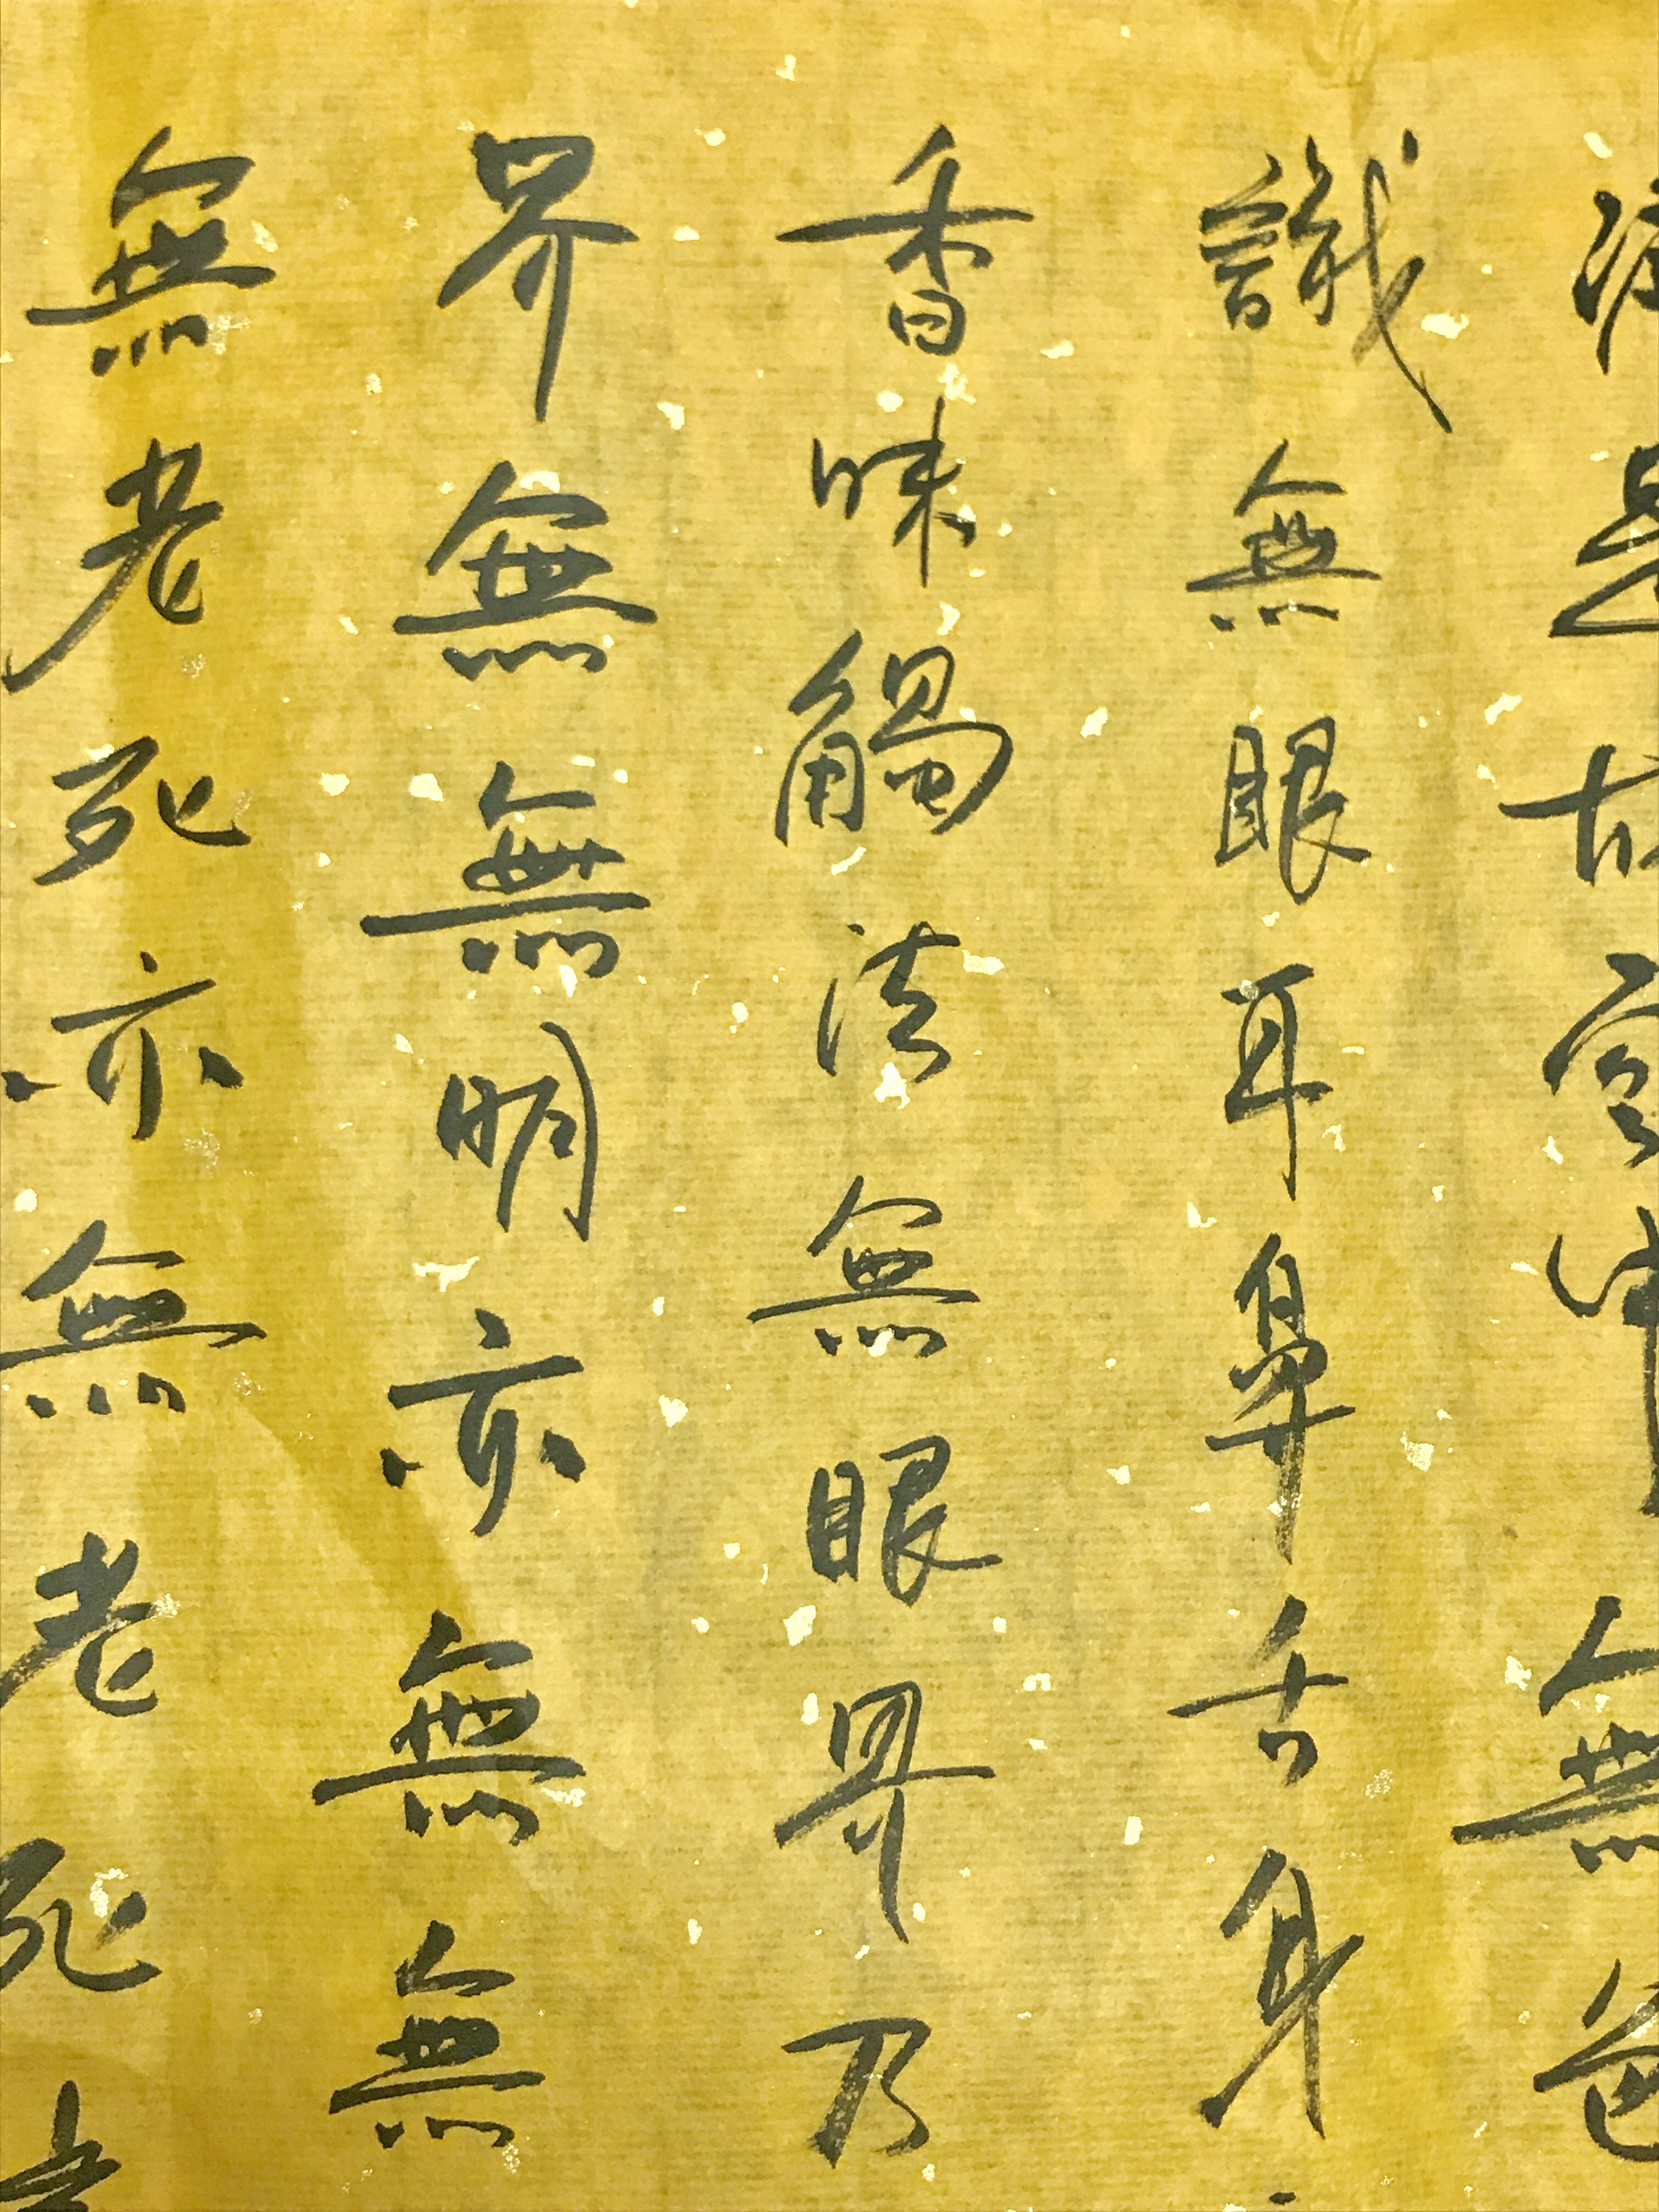 減是故空中無色
識無眼耳鼻舌身
香味觸法無眼界乃
界無無明亦無無
無老死亦無老死